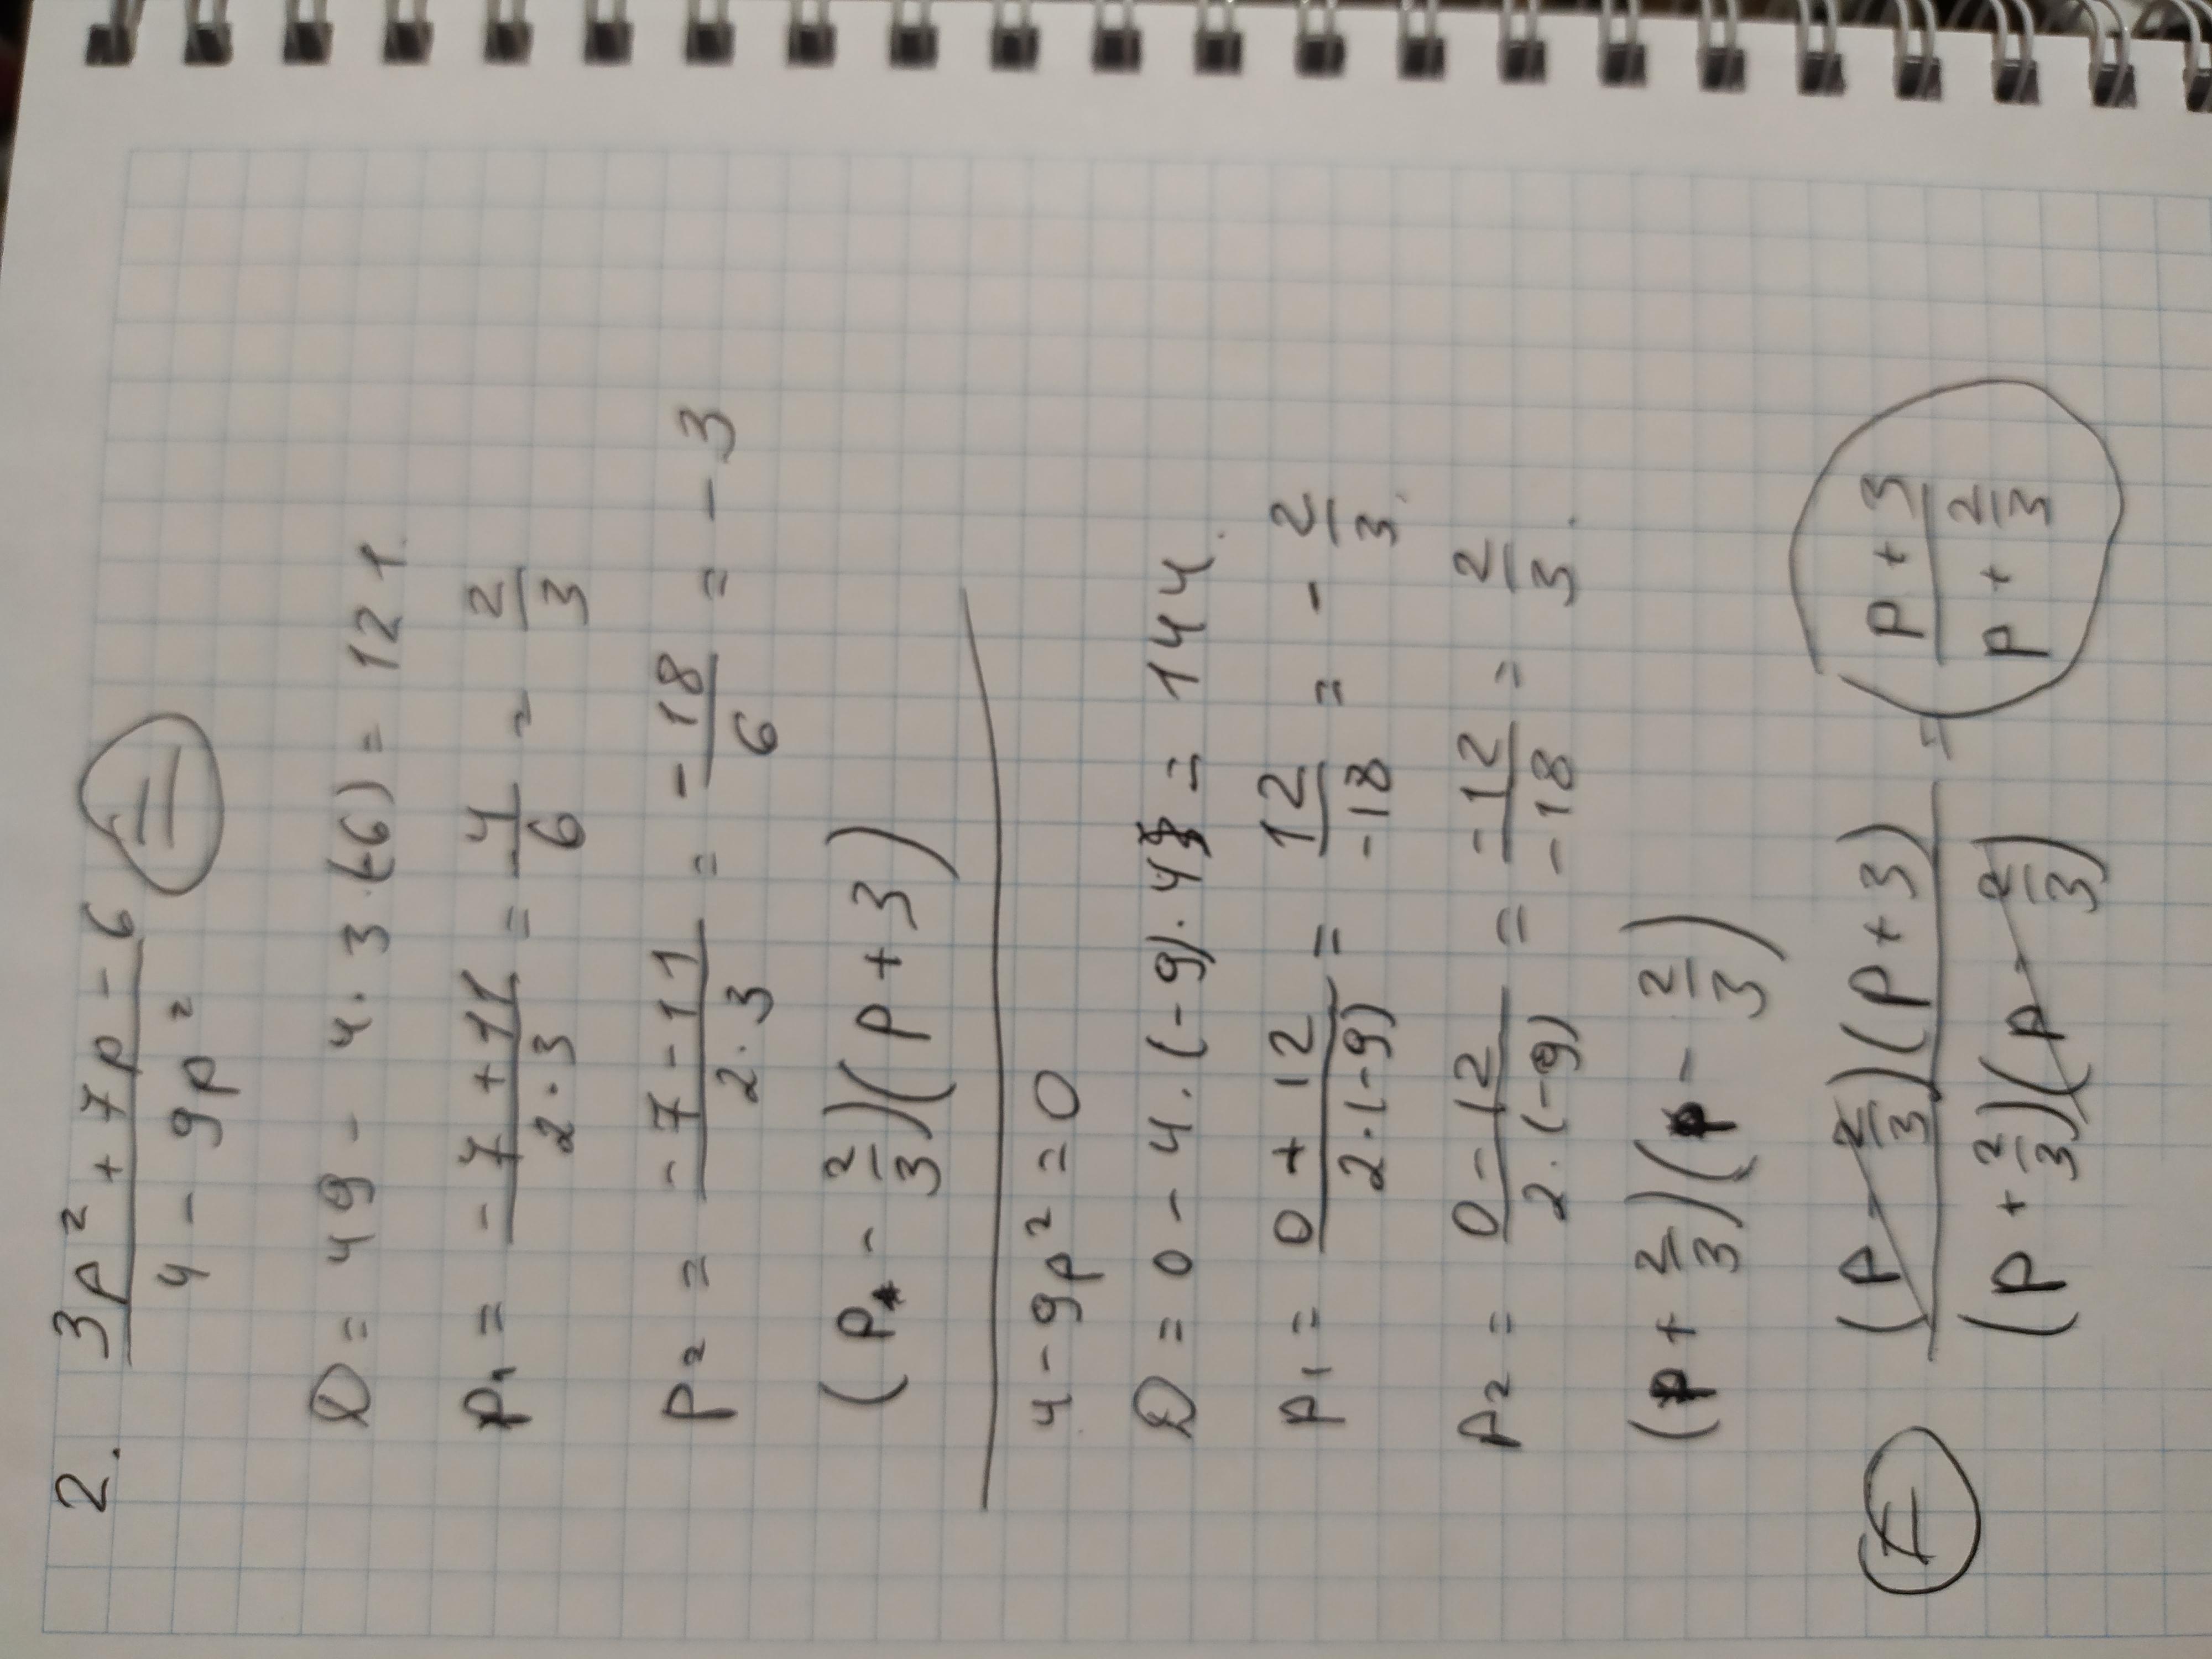 2. (3p² + 7p - 6)/(4 - 9p²) =
D = 49 - 4 · 3 · (-6) = 121.
p₁ = (-7 + 11)/(2 · 3) = 4/6 = 2/3
p₂ = (-7 - 11)/(2 · 3) = -18/6 = -3
(p - 2/3)(p + 3)
4 - 9p² = 0
D = 0 - 4 · (-9) · 4 = 144.
p₁ = (0 + 12)/(2 · (-9)) = 12/-18 = -2/3.
p₂ = (0 - 12)/(2 · (-9)) = -12/-18 = 2/3.
(p + 2/3)(p - 2/3)
= ((p - 2/3)(p + 3))/((p + 2/3)(p - 2/3)) = (p + 3)/(p + 2/3)